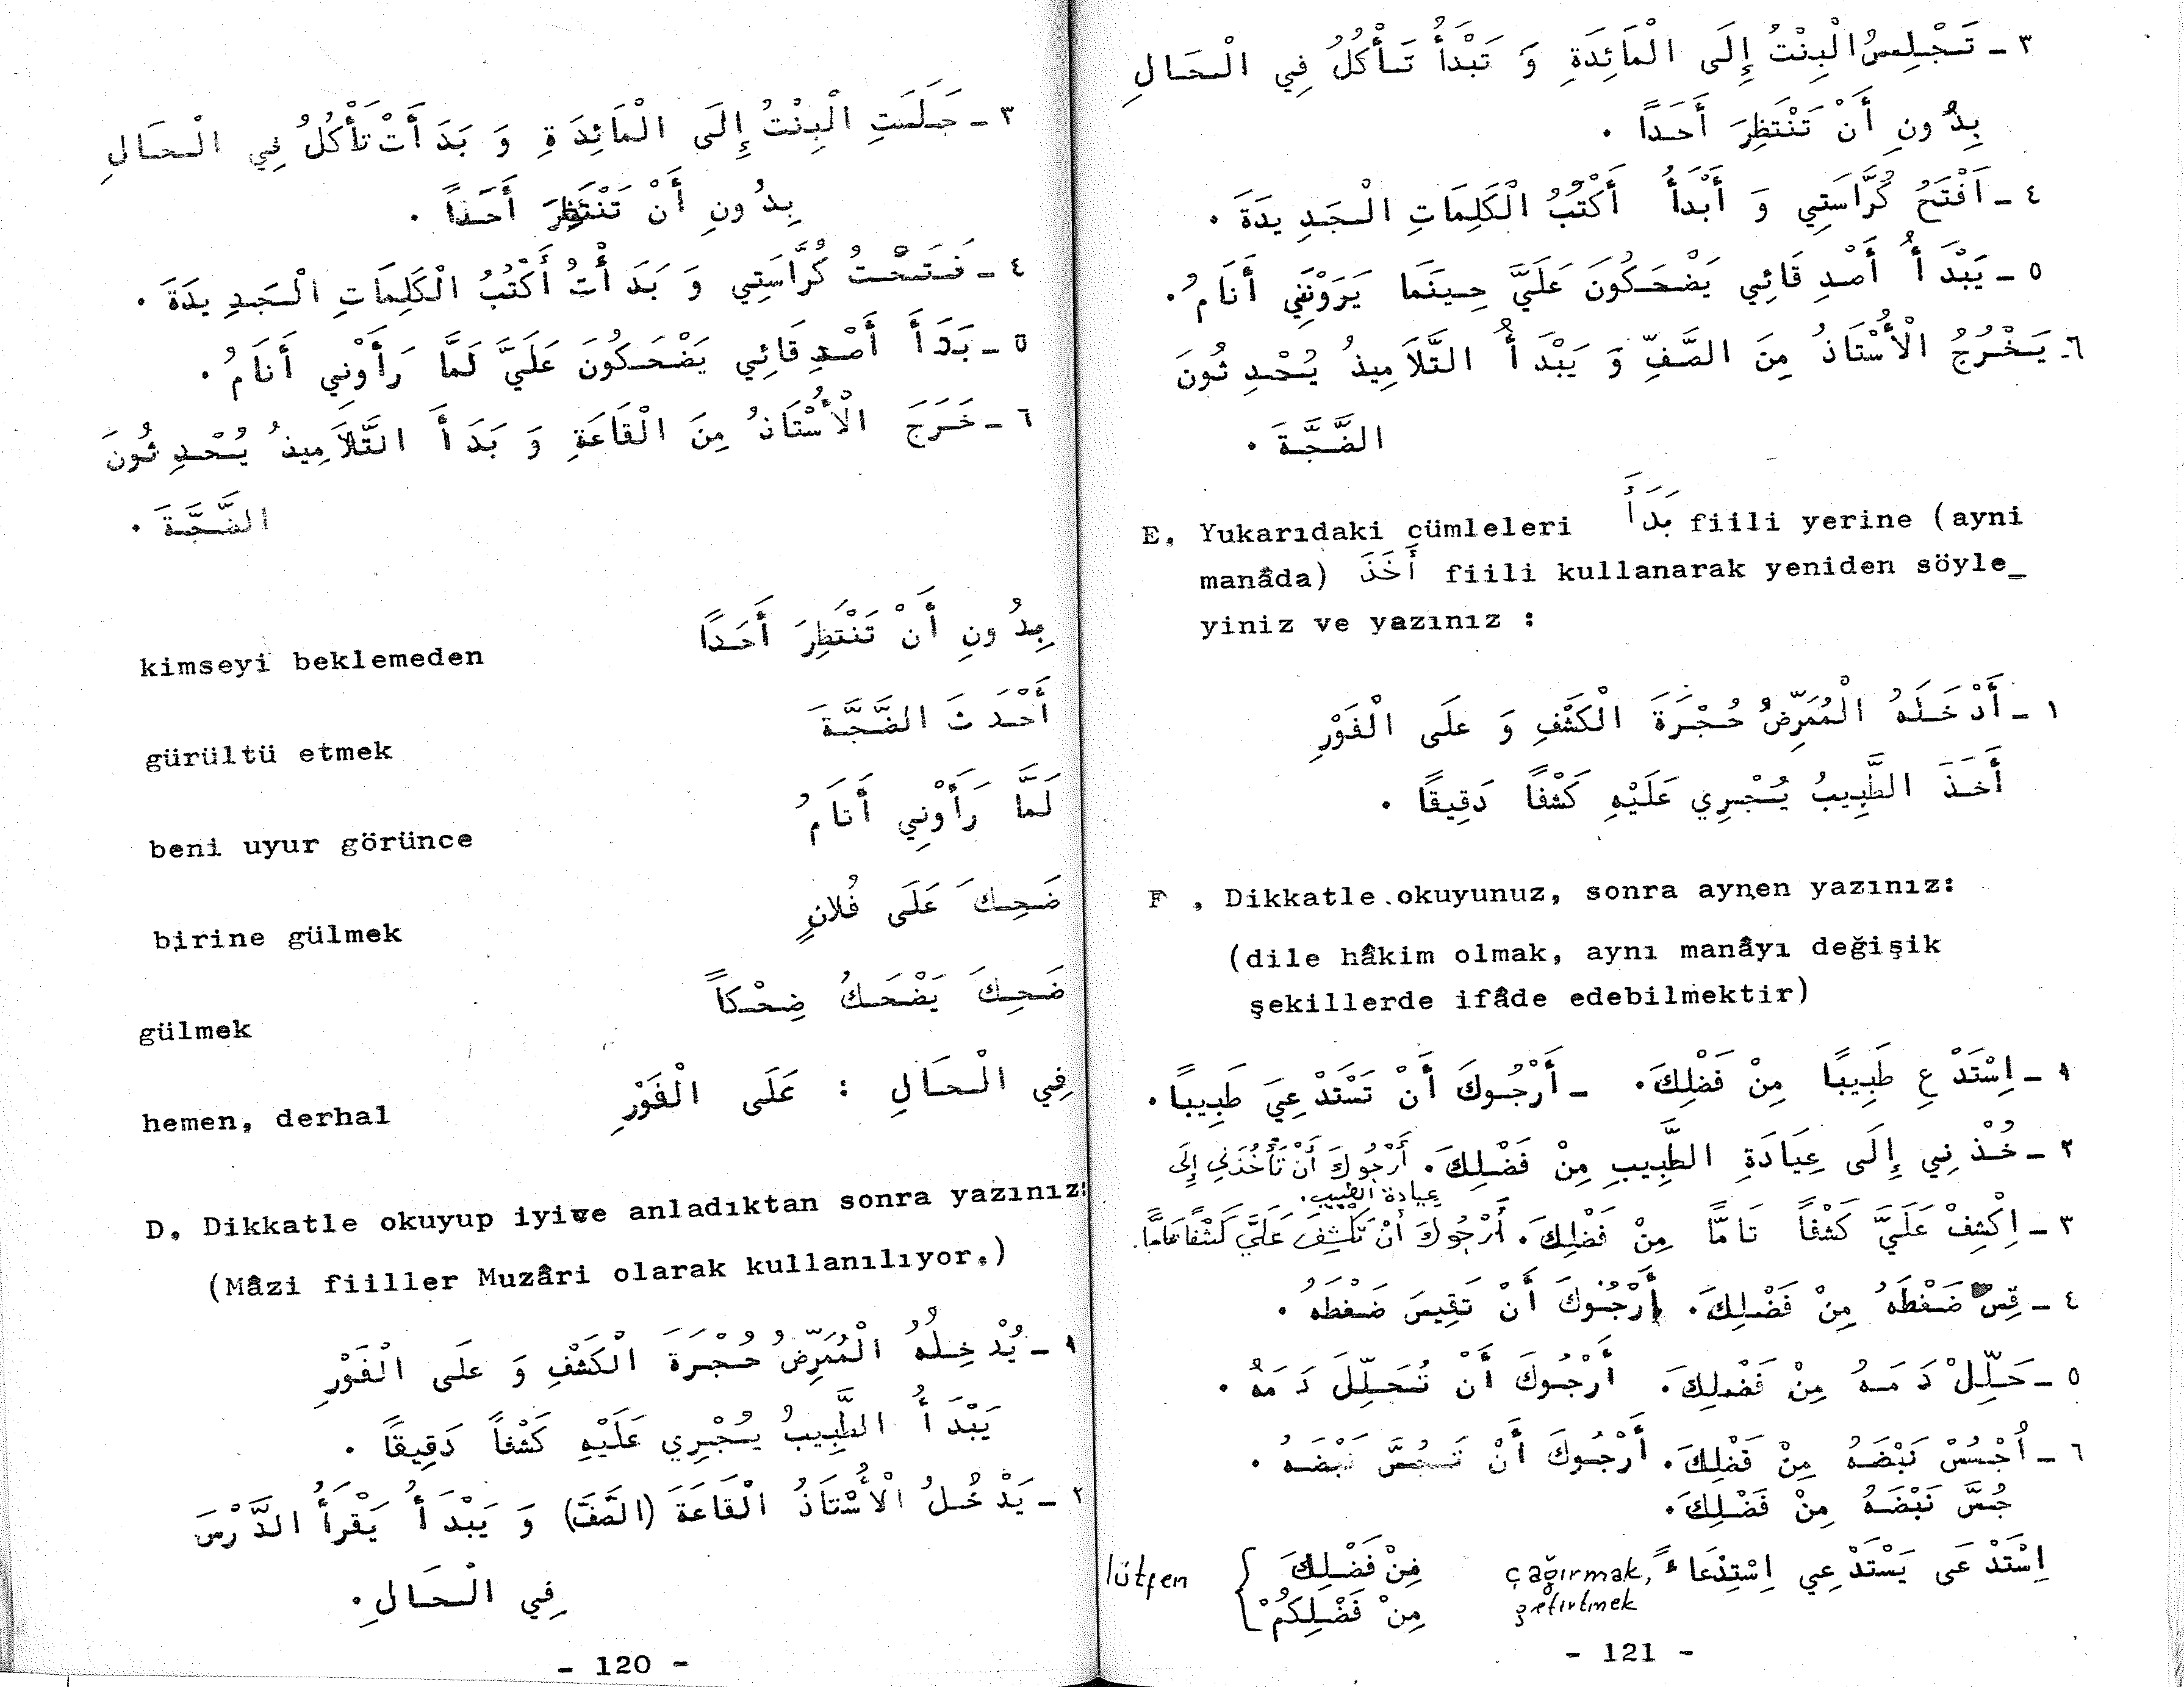 ٣ ـ جَلَسَتِ الْبِنْتُ إِلَى الْمَائِدَةِ وَ بَدَأَتْ تَأْكُلُ فِي الْحَالِ
بِدُونِ أَنْ تَنْتَظِرَ أَحَداً .
٤ ـ فَتَحْتُ كُرَّاسَتِي وَ بَدَأْتُ أَكْتُبُ الْكَلِمَاتِ الْجَدِيدَةَ .
٥ ـ بَدَأَ أَصْدِقَائِي يَضْحَكُونَ عَلَيَّ لَمَّا رَأَوْنِي أَنَامُ .
٦ ـ خَرَجَ الْأُسْتَاذُ مِنَ الْقَاعَةِ وَ بَدَأَ التَّلَامِيذُ يُحْدِثُونَ
الضَّجَّةَ .
kimseyi beklemeden بِدُونِ أَنْ تَنْتَظِرَ أَحَدًا
gürültü etmek أَحْدَثَ الضَّجَّةَ
beni uyur görünce لَمَّا رَأَوْنِي أَنَامُ
birine gülmek ضَحِكَ عَلَى فُلَانٍ
gülmek ضَحِكَ يَضْحَكُ ضِحْكاً
hemen, derhal فِي الْحَالِ : عَلَى الْفَوْرِ
D. Dikkatle okuyup iyice anladıktan sonra yazınız:
(Mâzi fiiller Muzâri olarak kullanılıyor.)
١ ـ يُدْخِلُهُ الْمُمَرِّضُ حُجْرَةَ الْكَشْفِ وَ عَلَى الْفَوْرِ
يَبْدَأُ الطَّبِيبُ يُجْرِي عَلَيْهِ كَشْفاً دَقِيقًا .
٢ ـ يَدْخُلُ الْأُسْتَاذُ الْقَاعَةَ (الصَّفَّ) وَ يَبْدَأُ يَقْرَأُ الدَّرْسَ
فِي الْحَالِ .
- 120 -
٣ ـ تَجْلِسُ الْبِنْتُ إِلَى الْمَائِدَةِ وَ تَبْدَأُ تَأْكُلُ فِي الْحَالِ
بِدُونِ أَنْ تَنْتَظِرَ أَحَداً .
٤ ـ أَفْتَحُ كُرَّاسَتِي وَ أَبْدَأُ أَكْتُبُ الْكَلِمَاتِ الْجَدِيدَةَ .
٥ ـ يَبْدَأُ أَصْدِقَائِي يَضْحَكُونَ عَلَيَّ حِينَمَا يَرَوْنَنِي أَنَامُ .
٦ ـ يَخْرُجُ الْأُسْتَاذُ مِنَ الصَّفِّ وَ يَبْدَأُ التَّلَامِيذُ يُحْدِثُونَ
الضَّجَّةَ .
E. Yukarıdaki cümleleri بَدَأَ fiili yerine (ayni
manâda) أَخَذَ fiili kullanarak yeniden söyle_
yiniz ve yazınız :
١ ـ أَدْخَلَهُ الْمُمَرِّضُ حُجْرَةَ الْكَشْفِ وَ عَلَى الْفَوْرِ
أَخَذَ الطَّبِيبُ يُجْرِي عَلَيْهِ كَشْفاً دَقِيقًا .
F . Dikkatle okuyunuz, sonra aynen yazınız:
(dile hâkim olmak, aynı manâyı değişik
şekillerde ifâde edebilmektir)
١ ـ اِسْتَدْعِ طَبِيبًا مِنْ فَضْلِكَ . ـ أَرْجُوكَ أَنْ تَسْتَدْعِيَ طَبِيبًا .
٢ ـ خُذْنِي إِلَى عِيَادَةِ الطَّبِيبِ مِنْ فَضْلِكَ . أَرْجُوكَ أَنْ تَأْخُذَنِي إِلَى
عيادة الطبيب .
٣ ـ اِكْشِفْ عَلَيَّ كَشْفًا تَامًّا مِنْ فَضْلِكَ . أَرْجُوكَ أَنْ تَكْشِفَ عَلَيَّ كَشْفًا تَامًّا .
٤ ـ قِسْ ضَغْطَهُ مِنْ فَضْلِكَ . أَرْجُوكَ أَنْ تَقِيسَ ضَغْطَهُ .
٥ ـ حَلِّلْ دَمَهُ مِنْ فَضْلِكَ . أَرْجُوكَ أَنْ تُحَلِّلَ دَمَهُ .
٦ ـ اُجْسُسْ نَبْضَهُ مِنْ فَضْلِكَ . أَرْجُوكَ أَنْ تَجُسَّ نَبْضَهُ .
جُسَّ نَبْضَهُ مِنْ فَضْلِكَ .
اِسْتَدْعَى يَسْتَدْعِي اِسْتِدْعَاءً çağırmak, getirtmek
مِنْ فَضْلِكَ
مِنْ فَضْلِكُمْ } lütfen
- 121 -